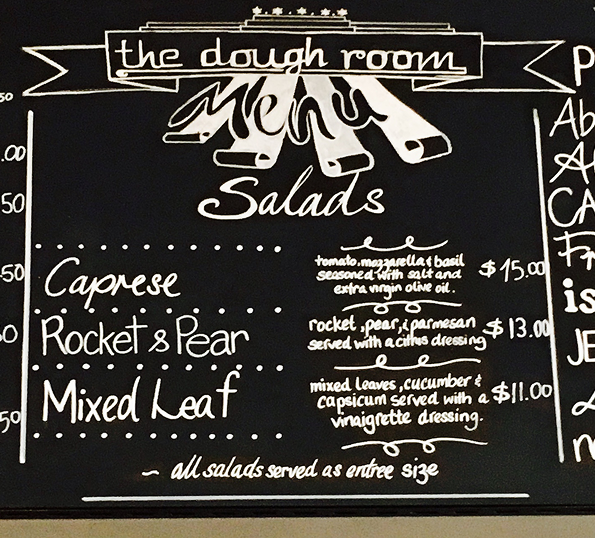 the dough room
Menu
Salads
Caprese
tomato, mozzarella & basil
seasoned with salt and
extra virgin olive oil.
$15.00
Rocket & Pear
rocket, pear, & parmesan
served with a citrus dressing
$13.00
Mixed Leaf
mixed leaves, cucumber &
capsicum served with a
vinaigrette dressing.
$11.00
~ all salads served as entree size
50
.00
50
50
50
P
Ab
CA
Fr
is
JE